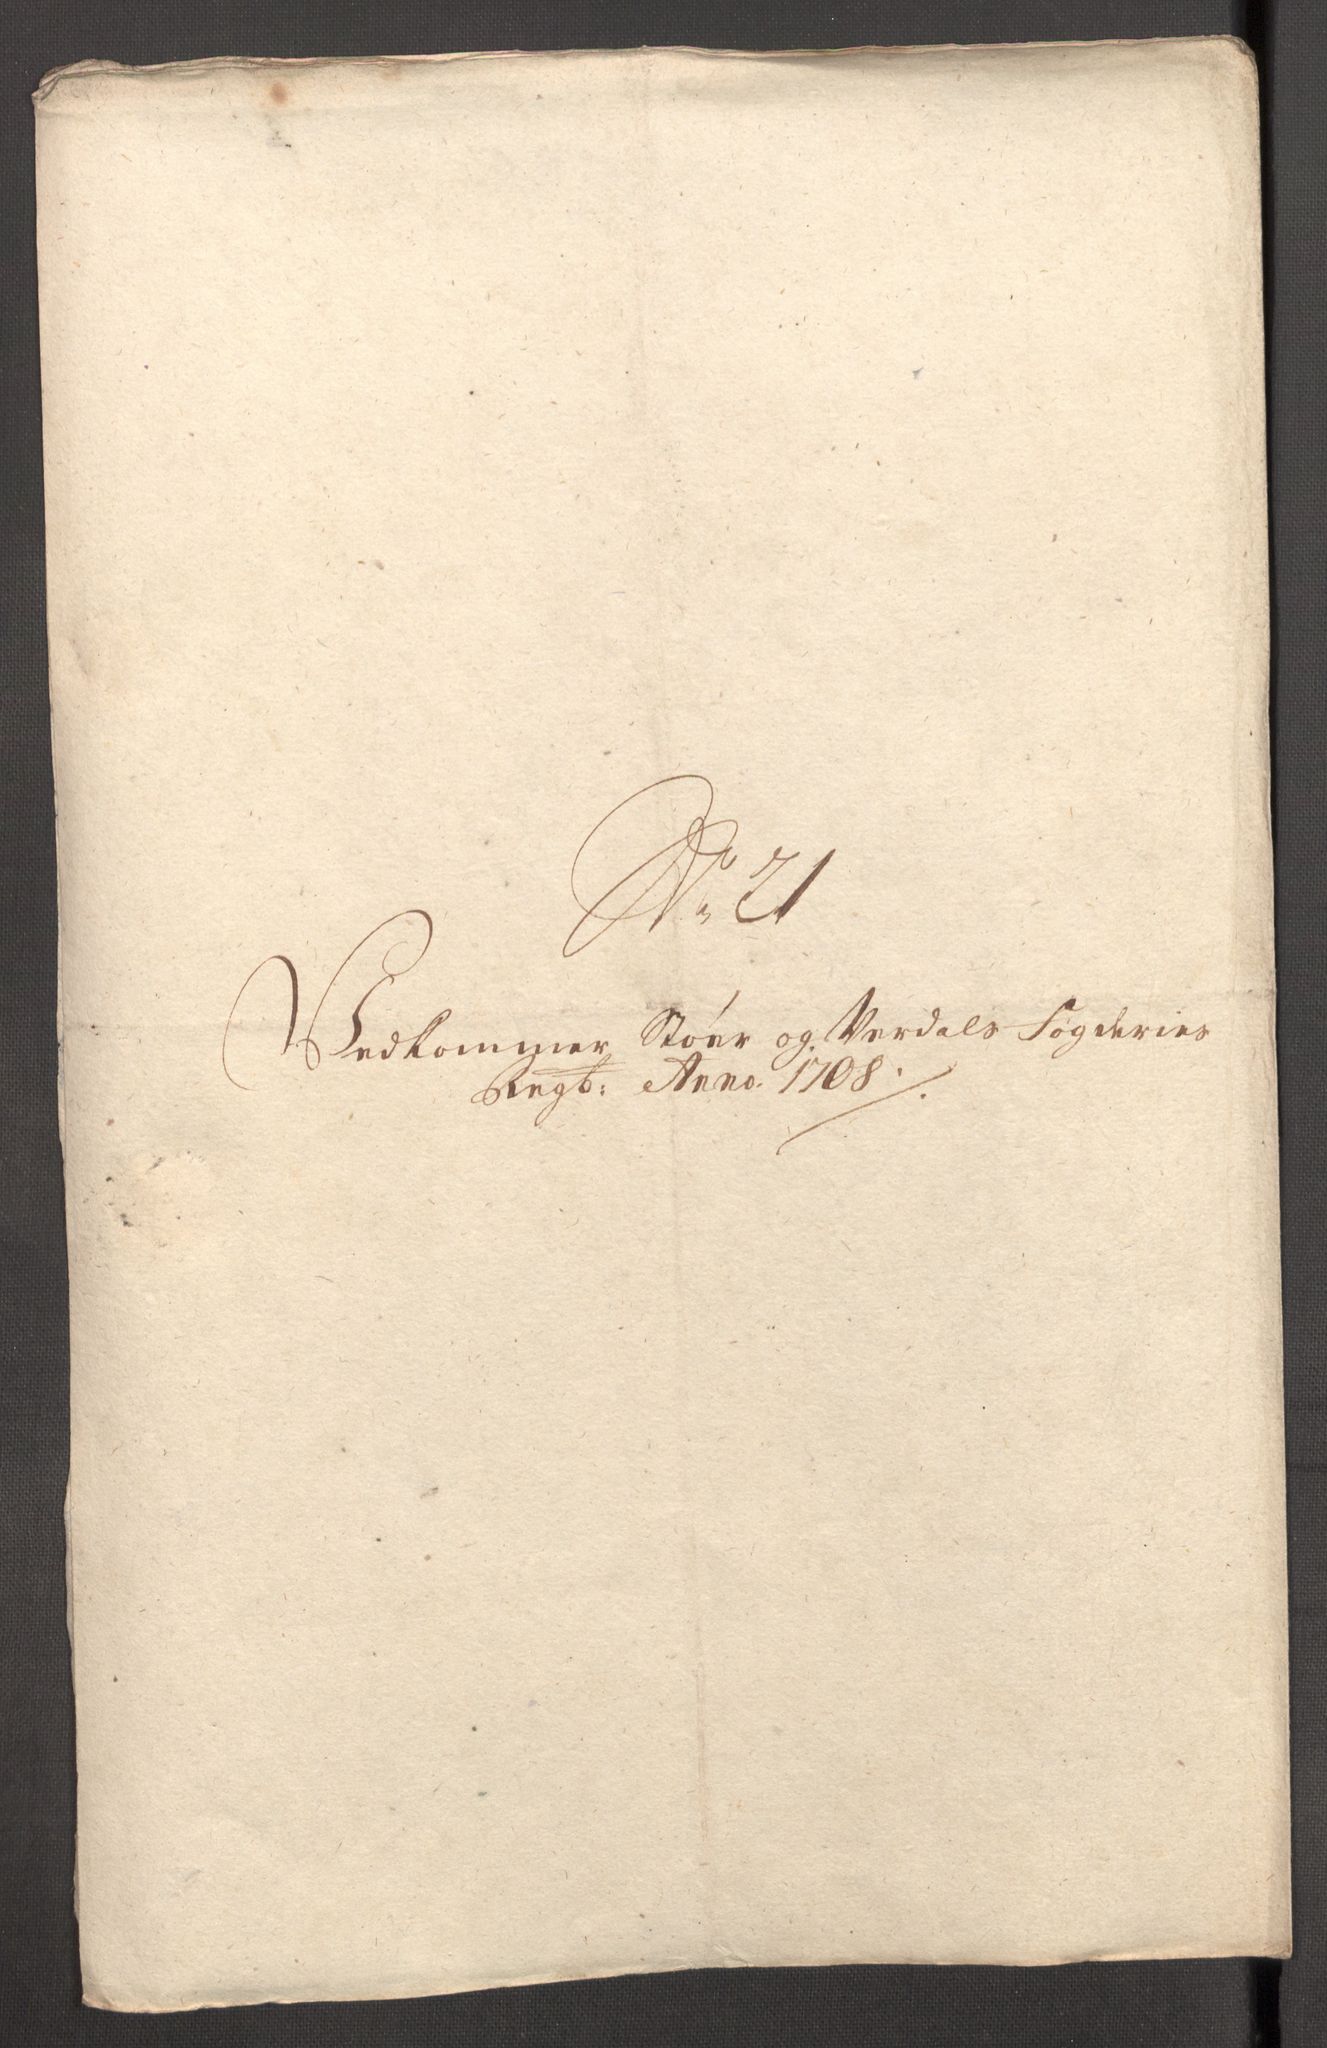 No: 21
Vedkommer Støer og Verdals Fogderies
Regb: Anno. 1708.